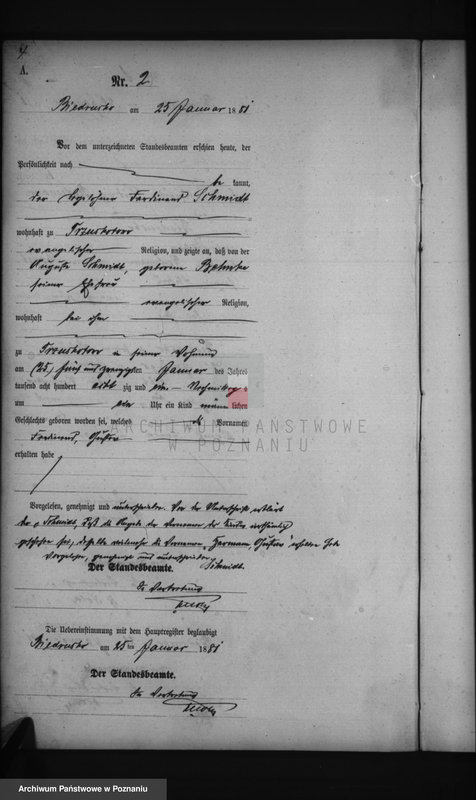 A.
Nr. 2
Biedrusko am 25 Januar 1881
Vor dem unterzeichneten Standesbeamten erschien heute, der
Persönlichkeit nach
be kannt,
der Ferdinand Schmidt
wohnhaft zu
evangelischer Religion, und zeigte an, daß von der
Auguste Schmidt, geborene
seiner Ehefrau
evangelischer Religion,
wohnhaft bei ihm
zu in seiner Wohnung
am (25.) fünf und zwanzigsten Januar des Jahres
tausend acht hundert acht zig und eins Nachmittags
um Uhr ein Kind männ lichen
Geschlechts geboren worden sei, welches Vornamen
Ferdinand, Gustav
erhalten habe
Vorgelesen, genehmigt und unterschrieben. Vor der Unterschrift erklärt
der p Schmidt, daß die Angabe der Vornamen des Kindes
geschehen sei, vielmehr die Vornamen „Hermann, Gustav" erhalten habe
Vorgelesen, genehmigt und unterschrieben
Schmidt.
Der Standesbeamte.
In Vertretung
Die Uebereinstimmung mit dem Hauptregister beglaubigt
Biedrusko am 25ten Januar 1881
Der Standesbeamte.
In Vertretung
ARCHIWUM PAŃSTWOWE
W POZNANIU
Archiwum Państwowe w Poznaniu